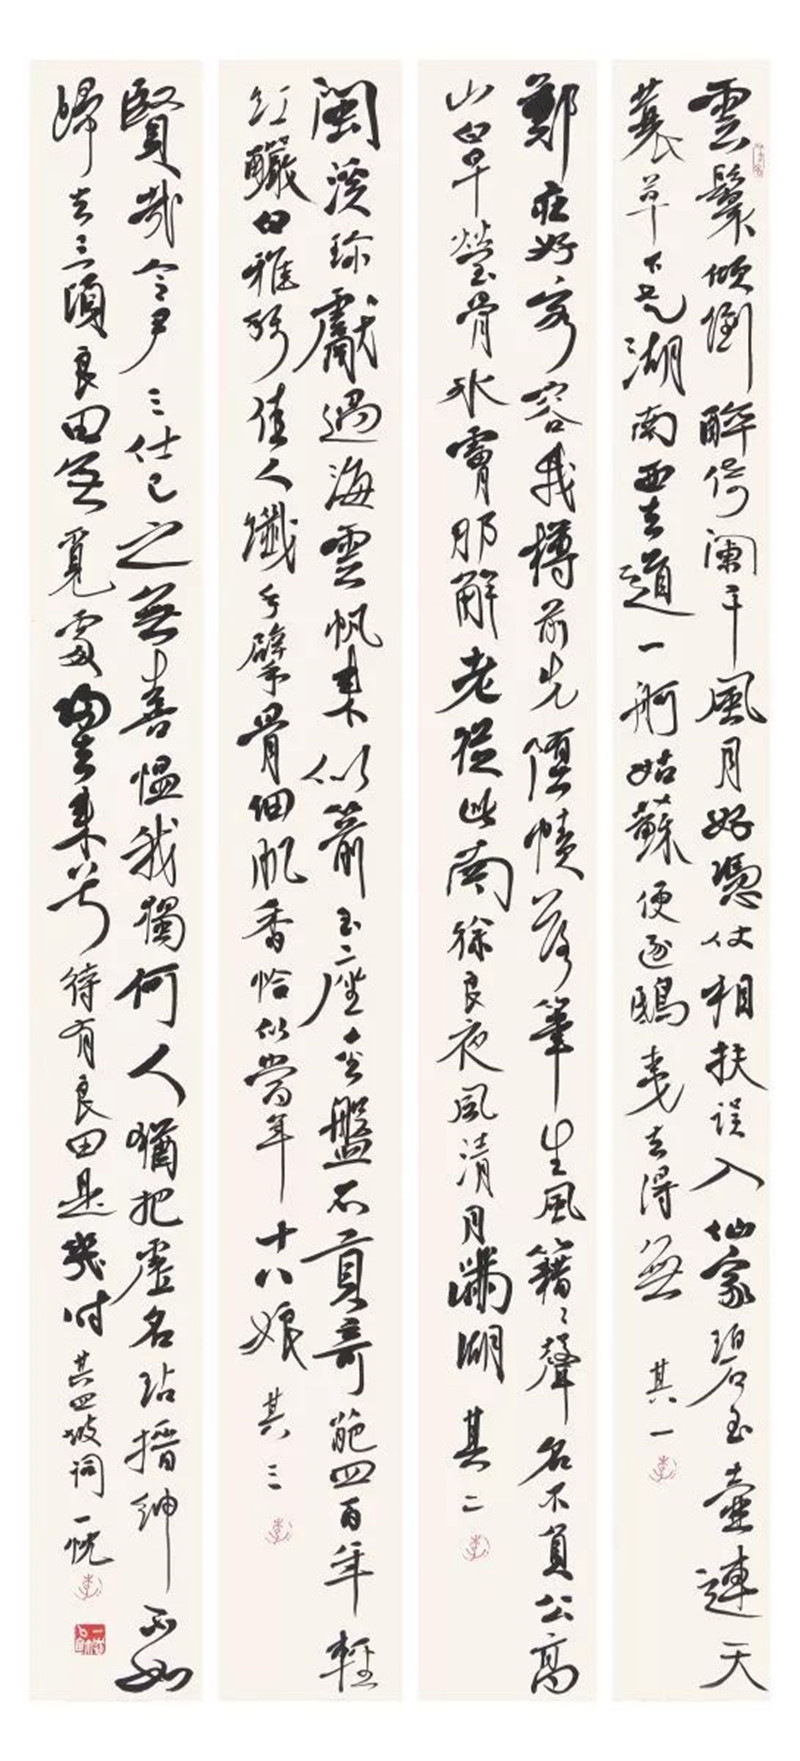 雲鬟傾倒醉倚闌干風月好憑仗相扶誤入仙家碧玉壺連天
衰草下走湖南西去道一舸姑蘇便逐鴟夷去得無 其一
鄭莊好客容我樽前先墮幘落筆生風籍籍聲名不負公高
山白早瑩骨冰膚那解老從此南徐良夜風清月滿湖 其二
閩溪珍獻過海雲帆來似箭玉座金盤不貢奇葩四百年輕
紅釅白雅稱佳人纖手擘骨細肌香恰似當年十八娘 其三
賢哉令尹三仕已之無喜慍我獨何人猶把虛名玷搢紳不如
歸去二頃良田無覓處歸去來兮待有良田是幾時 其四坡詞